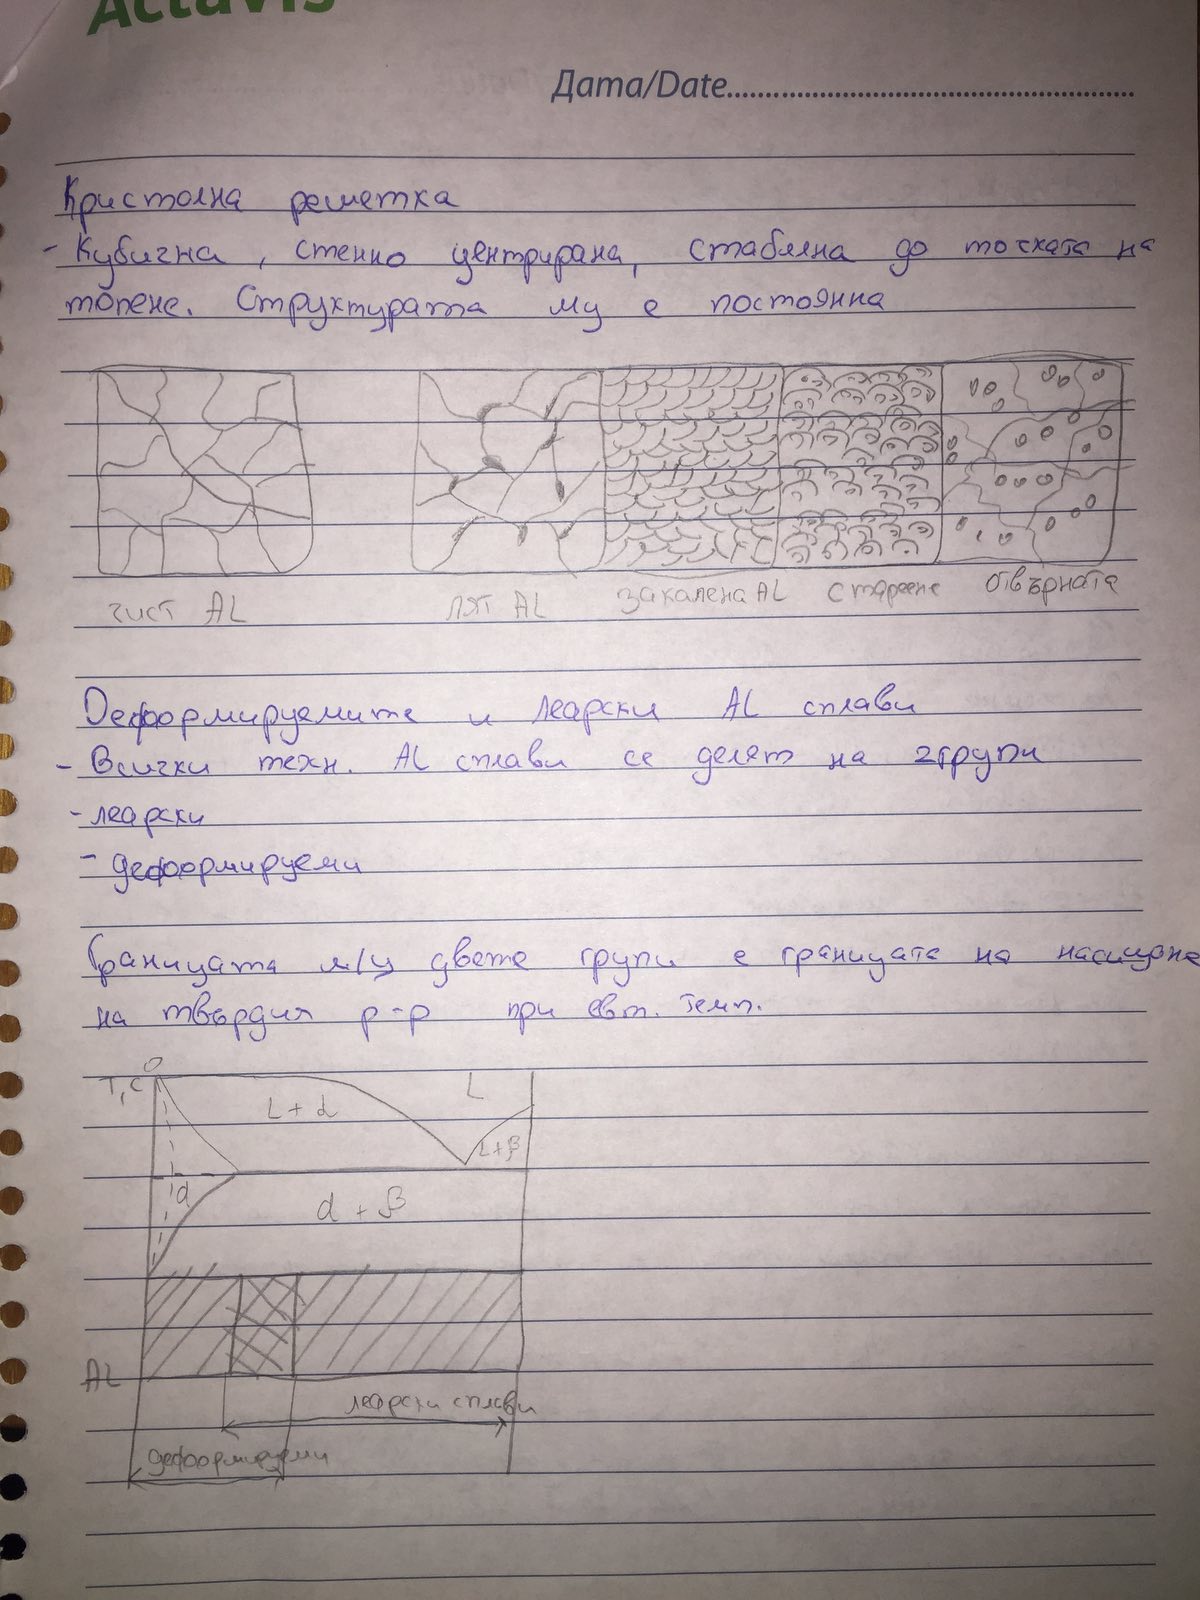 Actavis
Дата/Date
Кристолна решетка
- Кубична, стенно центрирана, стабилна до точката на
топене. Структурата му е постоянна
чист AL лят AL закалена AL стареене отвърната
Деформируемите и леарски AL сплави
- Всички техн. AL сплави се делят на 2групи
- леарски
- деформируеми
Границата м/ц двете групи е границата на насищане
на твърдия р-р при евт. темп.
T,C O L
L+α
L+β
α
α + β
AL
леарски сплави
деформируеми